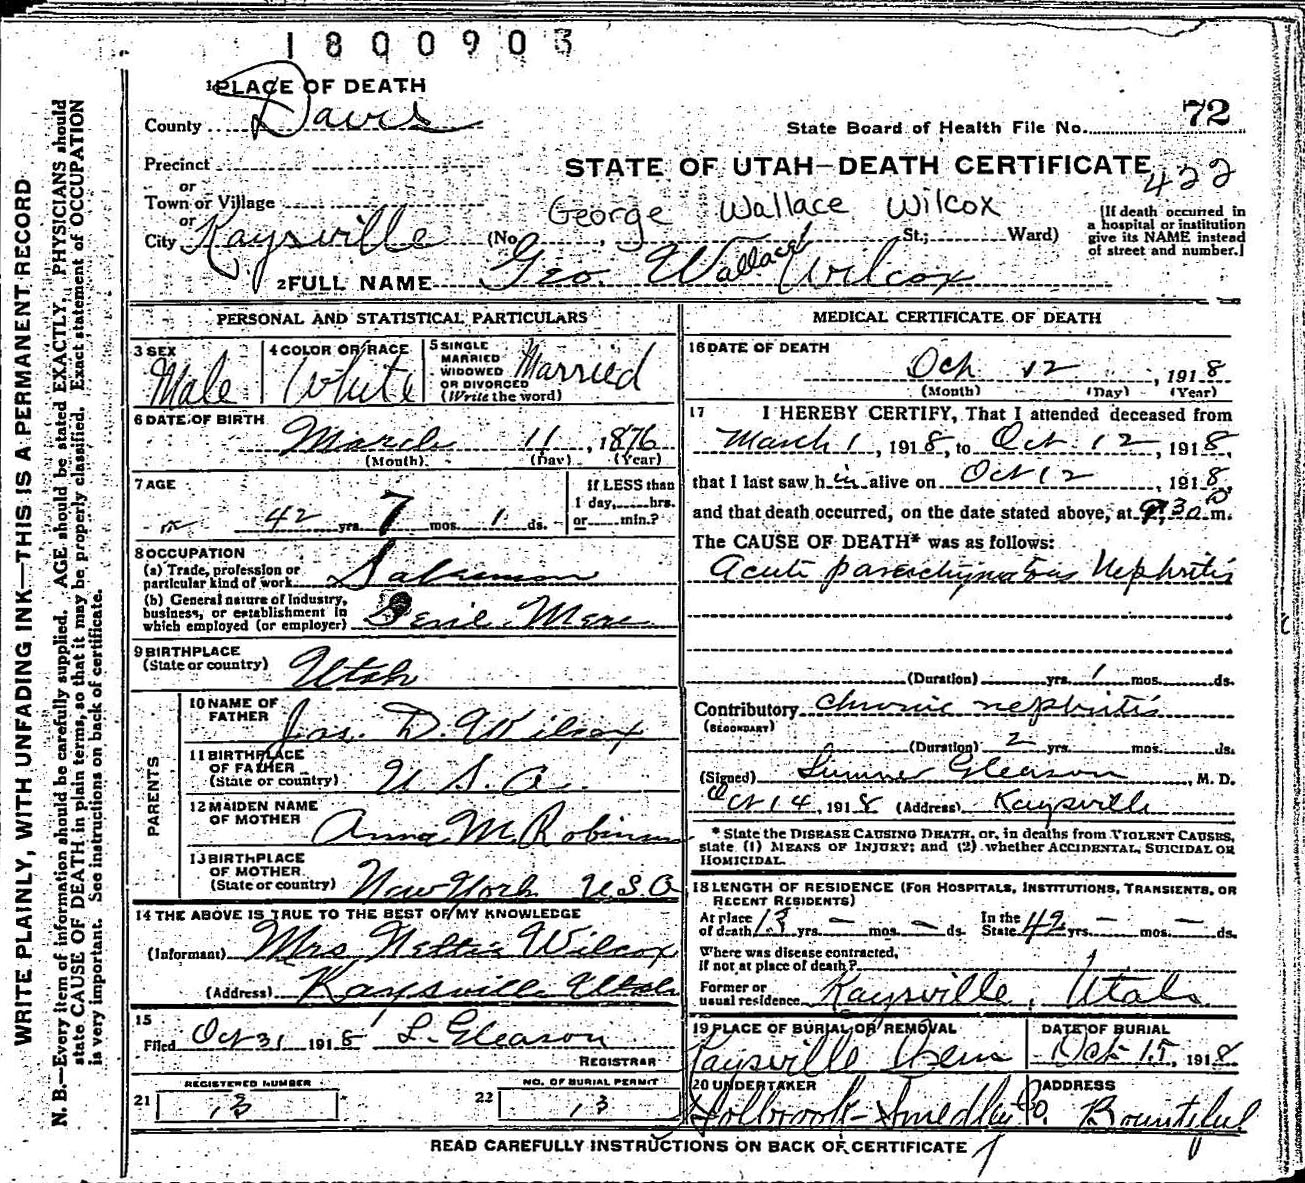 1800903
1 PLACE OF DEATH
County Davis
72
State Board of Health File No.
Precinct
STATE OF UTAH—DEATH CERTIFICATE
422
or
Town or Village
or
City Kaysville
George Wallace Wilcox
(No. , St.; Ward)
[If death occured in
a hospital or institution
give its NAME instead
of street and number.]
2 FULL NAME Geo. Wallace Wilcox
PERSONAL AND STATISTICAL PARTICULARS
3 SEX
Male
4 COLOR OR RACE
White
5 SINGLE
MARRIED
WIDOWED
OR DIVORCED
(Write the word)
Married
6 DATE OF BIRTH
March 11, 1876
(Month) (Day) (Year)
7 AGE
42 yrs. 7 mos. 1 ds.
If LESS than
1 day, hrs.
or min.?
8 OCCUPATION
(a) Trade, profession or
particular kind of work Salesman
(b) General nature of Industry,
business, or establishment in
which employed (or employer) Genl. Merc
9 BIRTHPLACE
(State or country) Utah
PARENTS
10 NAME OF
FATHER Jas. D. Wilcox
11 BIRTHPLACE
OF FATHER
(State or country) U. S. A.
12 MAIDEN NAME
OF MOTHER Anna M. Robinson
13 BIRTHPLACE
OF MOTHER
(State or country) New York U.S.A
14 THE ABOVE IS TRUE TO THE BEST OF MY KNOWLEDGE
(Informant) Mrs Nettie Wilcox
(Address) Kaysville Utah
15
Filed Oct 31 1918 S. Gleason
REGISTRAR
REGISTERED NUMBER
21 13
NO. OF BURIAL PERMIT
22 13
MEDICAL CERTIFICATE OF DEATH
16 DATE OF DEATH
Oct 12, 1918
(Month) (Day) (Year)
17 I HEREBY CERTIFY, That I attended deceased from
March 1, 1918, to Oct 12, 1918,
that I last saw him alive on Oct 12, 1918,
and that death occurred, on the date stated above, at 9.30 P m.
The CAUSE OF DEATH* was as follows:
Acute parenchymatous Nephritis
(Duration) yrs. 1 mos. ds.
Contributory chronic nephritis
(SECONDARY)
(Duration) 2 yrs. mos. ds.
(Signed) Sumner Gleason, M. D.
Oct 14, 1918 (Address) Kaysville
* State the DISEASE CAUSING DEATH, or, in deaths from VIOLENT CAUSES,
state (1) MEANS OF INJURY; and (2) whether ACCIDENTAL, SUICIDAL OR
HOMICIDAL.
18 LENGTH OF RESIDENCE (FOR HOSPITALS, INSTITUTIONS, TRANSIENTS, OR
RECENT RESIDENTS)
At place
of death 13 yrs. — mos. — ds.
In the
State 42 yrs. — mos. — ds.
Where was disease contracted,
If not at place of death?
Former or
usual residence Kaysville, Utah
19 PLACE OF BURIAL OR REMOVAL
Kaysville Cem
DATE OF BURIAL
Oct 15, 1918
20 UNDERTAKER
Holbrook-Smedley Co.
ADDRESS
Bountiful
READ CAREFULLY INSTRUCTIONS ON BACK OF CERTIFICATE
WRITE PLAINLY, WITH UNFADING INK—THIS IS A PERMANENT RECORD
N. B.—Every item of information should be carefully supplied. AGE should be stated EXACTLY. PHYSICIANS should
state CAUSE OF DEATH in plain terms, so that it may be properly classified. Exact statement of OCCUPATION
is very important. See instructions on back of certificate.